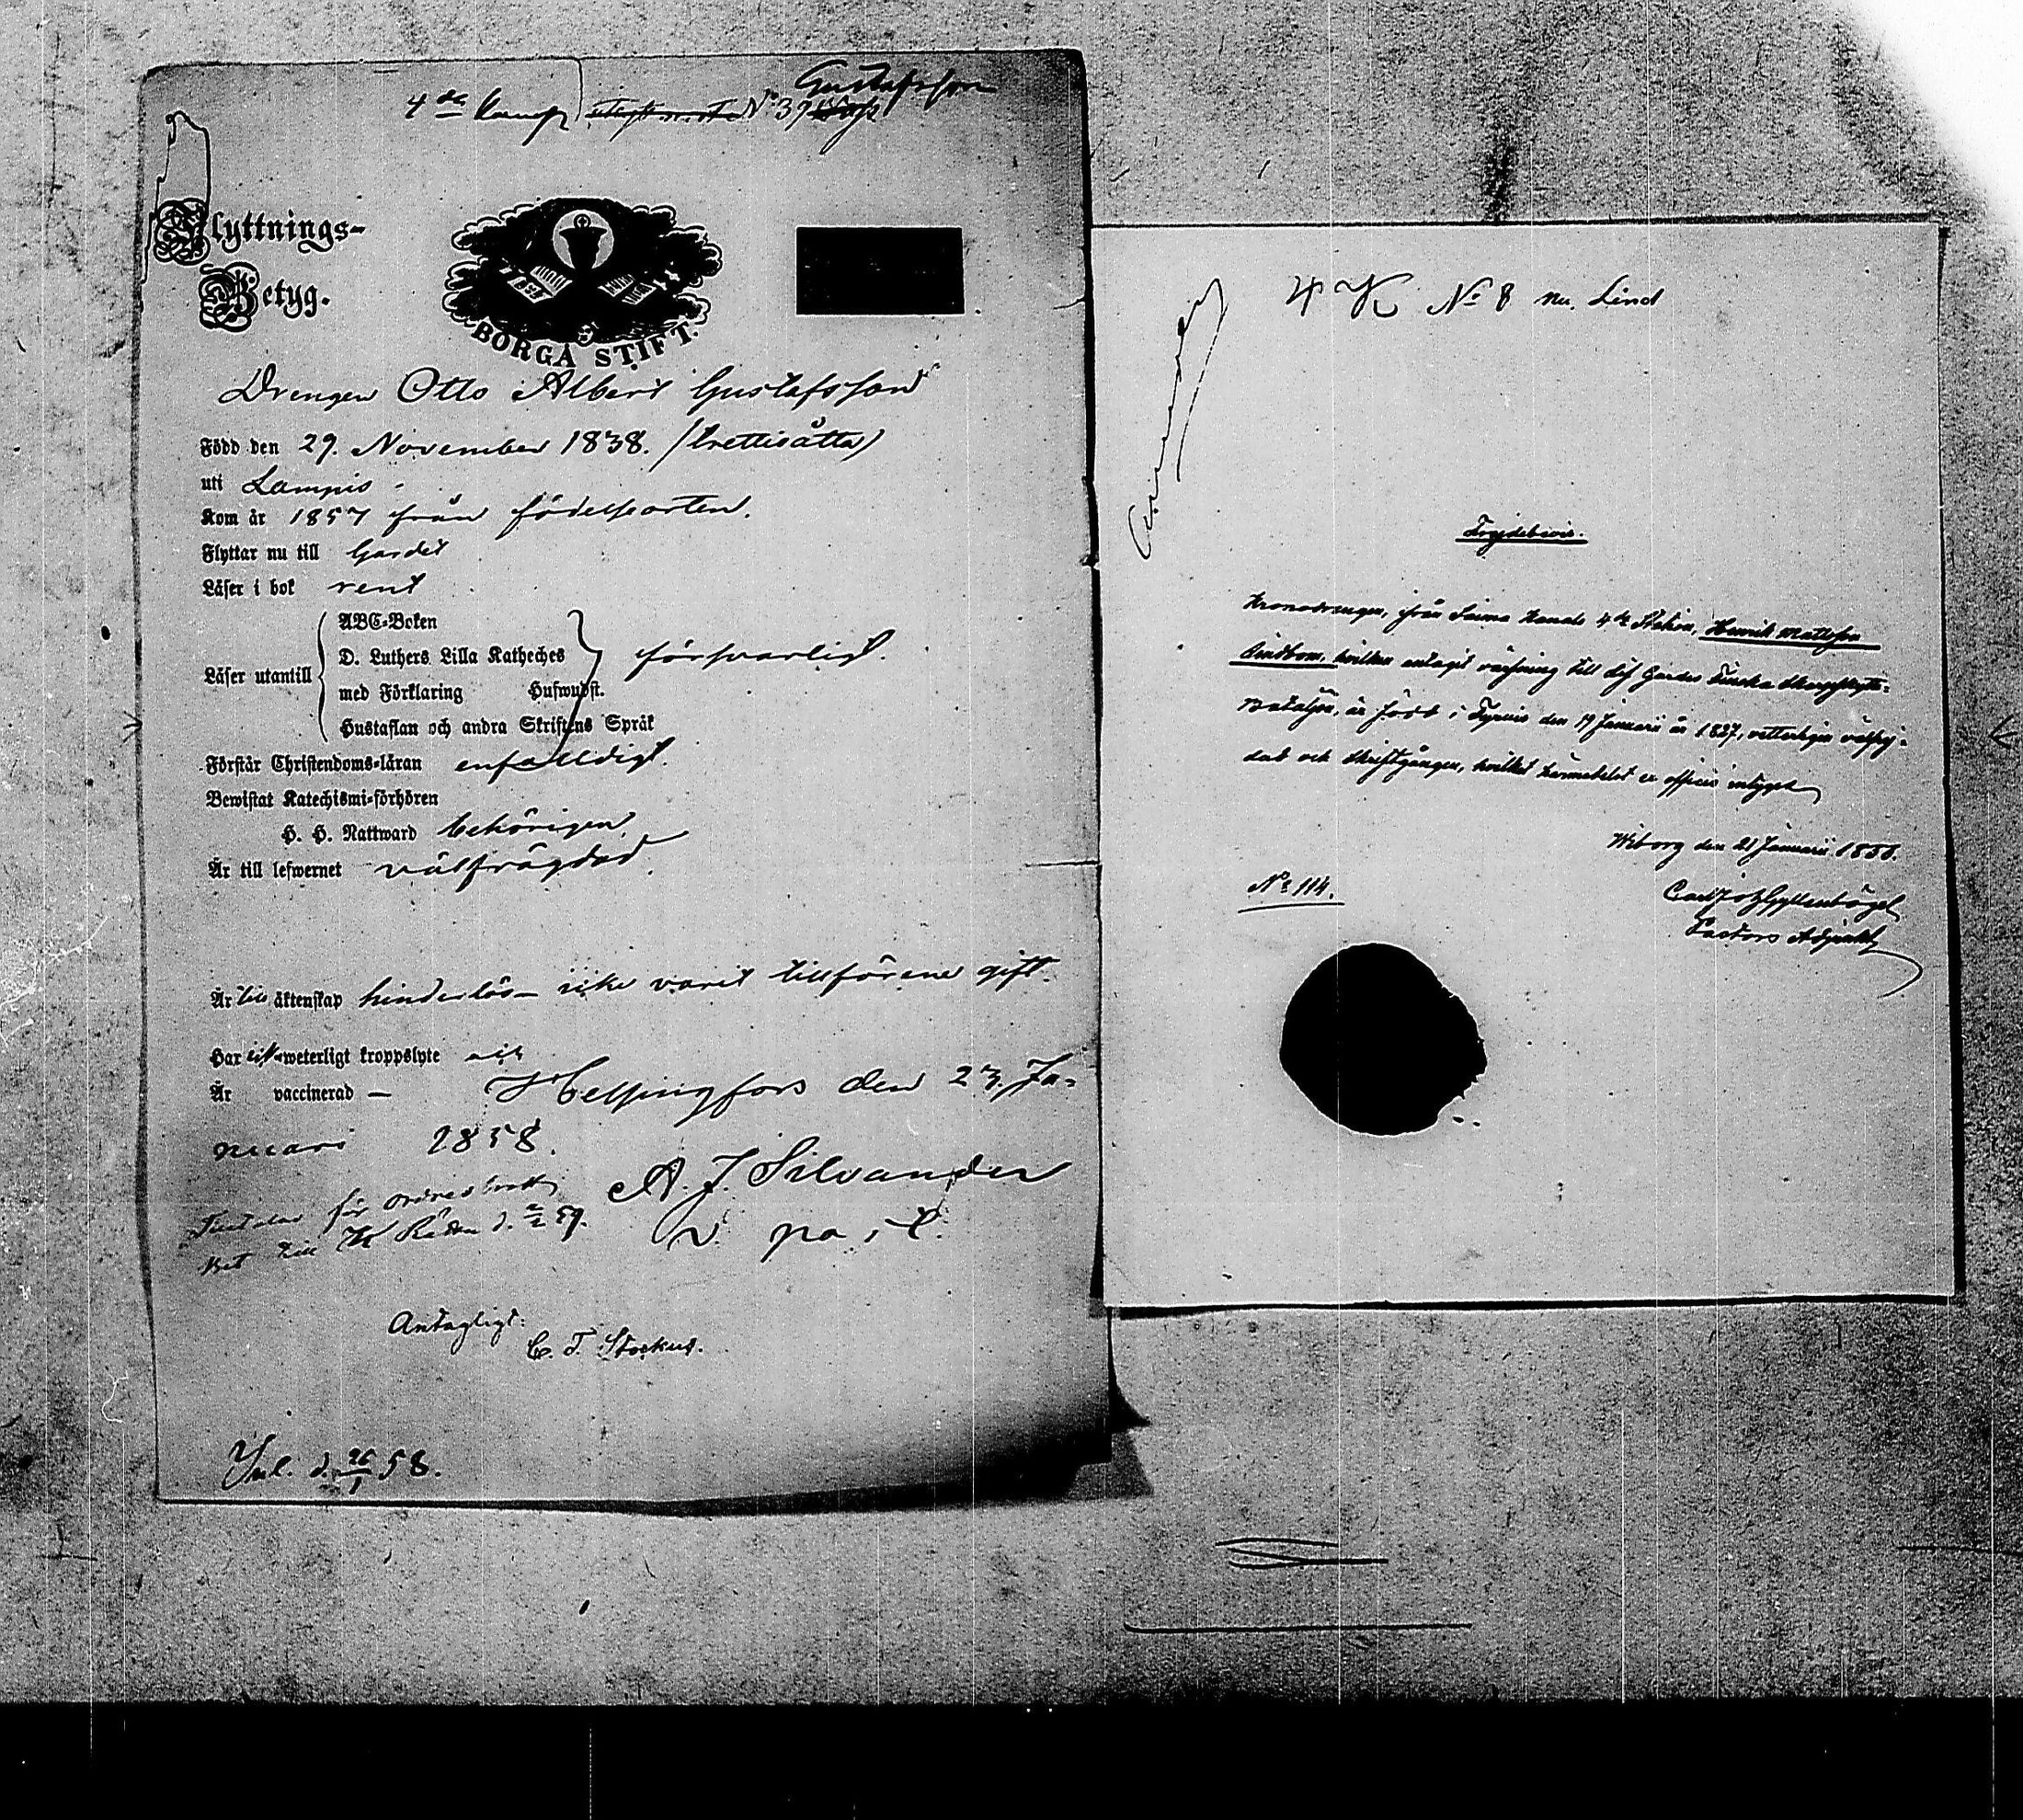 4de Komp. No 37 Gustafsson
Flyttnings-
Betyg.
BORGÅ STIFT.
Drengen Otto Albert Gustafsson
Född den 29. November 1838. (trettioåtta)
uti Lampis
Kom år 1857 från födelseorten.
Flyttar nu till Gardet
Läser i bok rent
Läser utantill
ABC-Boken
D. Luthers Lilla Katheches
med Förklaring Hufwudst.
Hustaflan och andra Skriftens Språk
försvarligt.
Förstår Christendoms-läran enfaldigt.
Bewistat Katechismi-förhören
H. H. Nattward behörigen
Är till lefwernet välfrägdad.
Är till äktenskap hinderlös – icke varit tillförene gift.
Har weterligt kroppslyte
Är vaccinerad —
Helsingfors den 23. Ja-
nuari 1858.
A. J. Silvander
v. pa
för
till
Antagligt:
C. T. Stockus.
d. 26/1 58.
4 K No 8 nu. Lind
Frejdebevis.
Kronodrengen, från Saima Kanals 4de Station, Henrik Mattsson
Lindbom, hvilken antagit värfning till Lif Gardes Finska Skarpskytte-
Bataljon, är född i Tyrvis den 19 Januarii år 1837, vetterligen välfrej-
dad och skriftgången, hvilket härmedelst ex officio intygas
Wiborg den 21 Januarii 1858.
No 114.
Gyllenbögel
Pastors Adjunkt